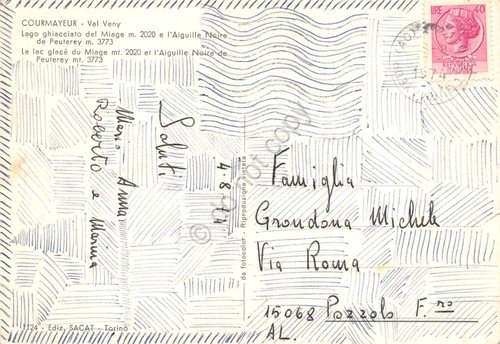 COURMAYEUR - Val Veny
Lago ghiacciato del Miage m. 2020 e l'Aiguille Noire
de Peuterey m. 3773
Le lac glacé du Miage mt. 2020 et l'Aiguille Noire de
Peuterey mt. 3773
LIRE 40
Saluti
4-8-74
Mario Anna
Roberto e Marina
da fotocolor Riproduzione vietata
Famiglia
Grondona Michele
Via Roma
15068 Pozzolo F.no
AL.
1124 - Ediz. SACAT - Torino